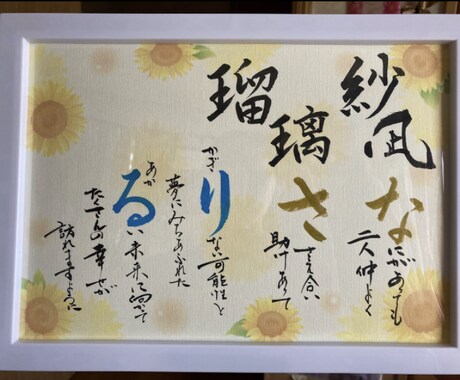 紗凪
瑠璃
なにがあっても
二人仲よく
ささえ合い
助けあって
かぎりない可能性と
夢にみちあふれた
あかるい未来に向って
たくさんの幸せが
訪れますように